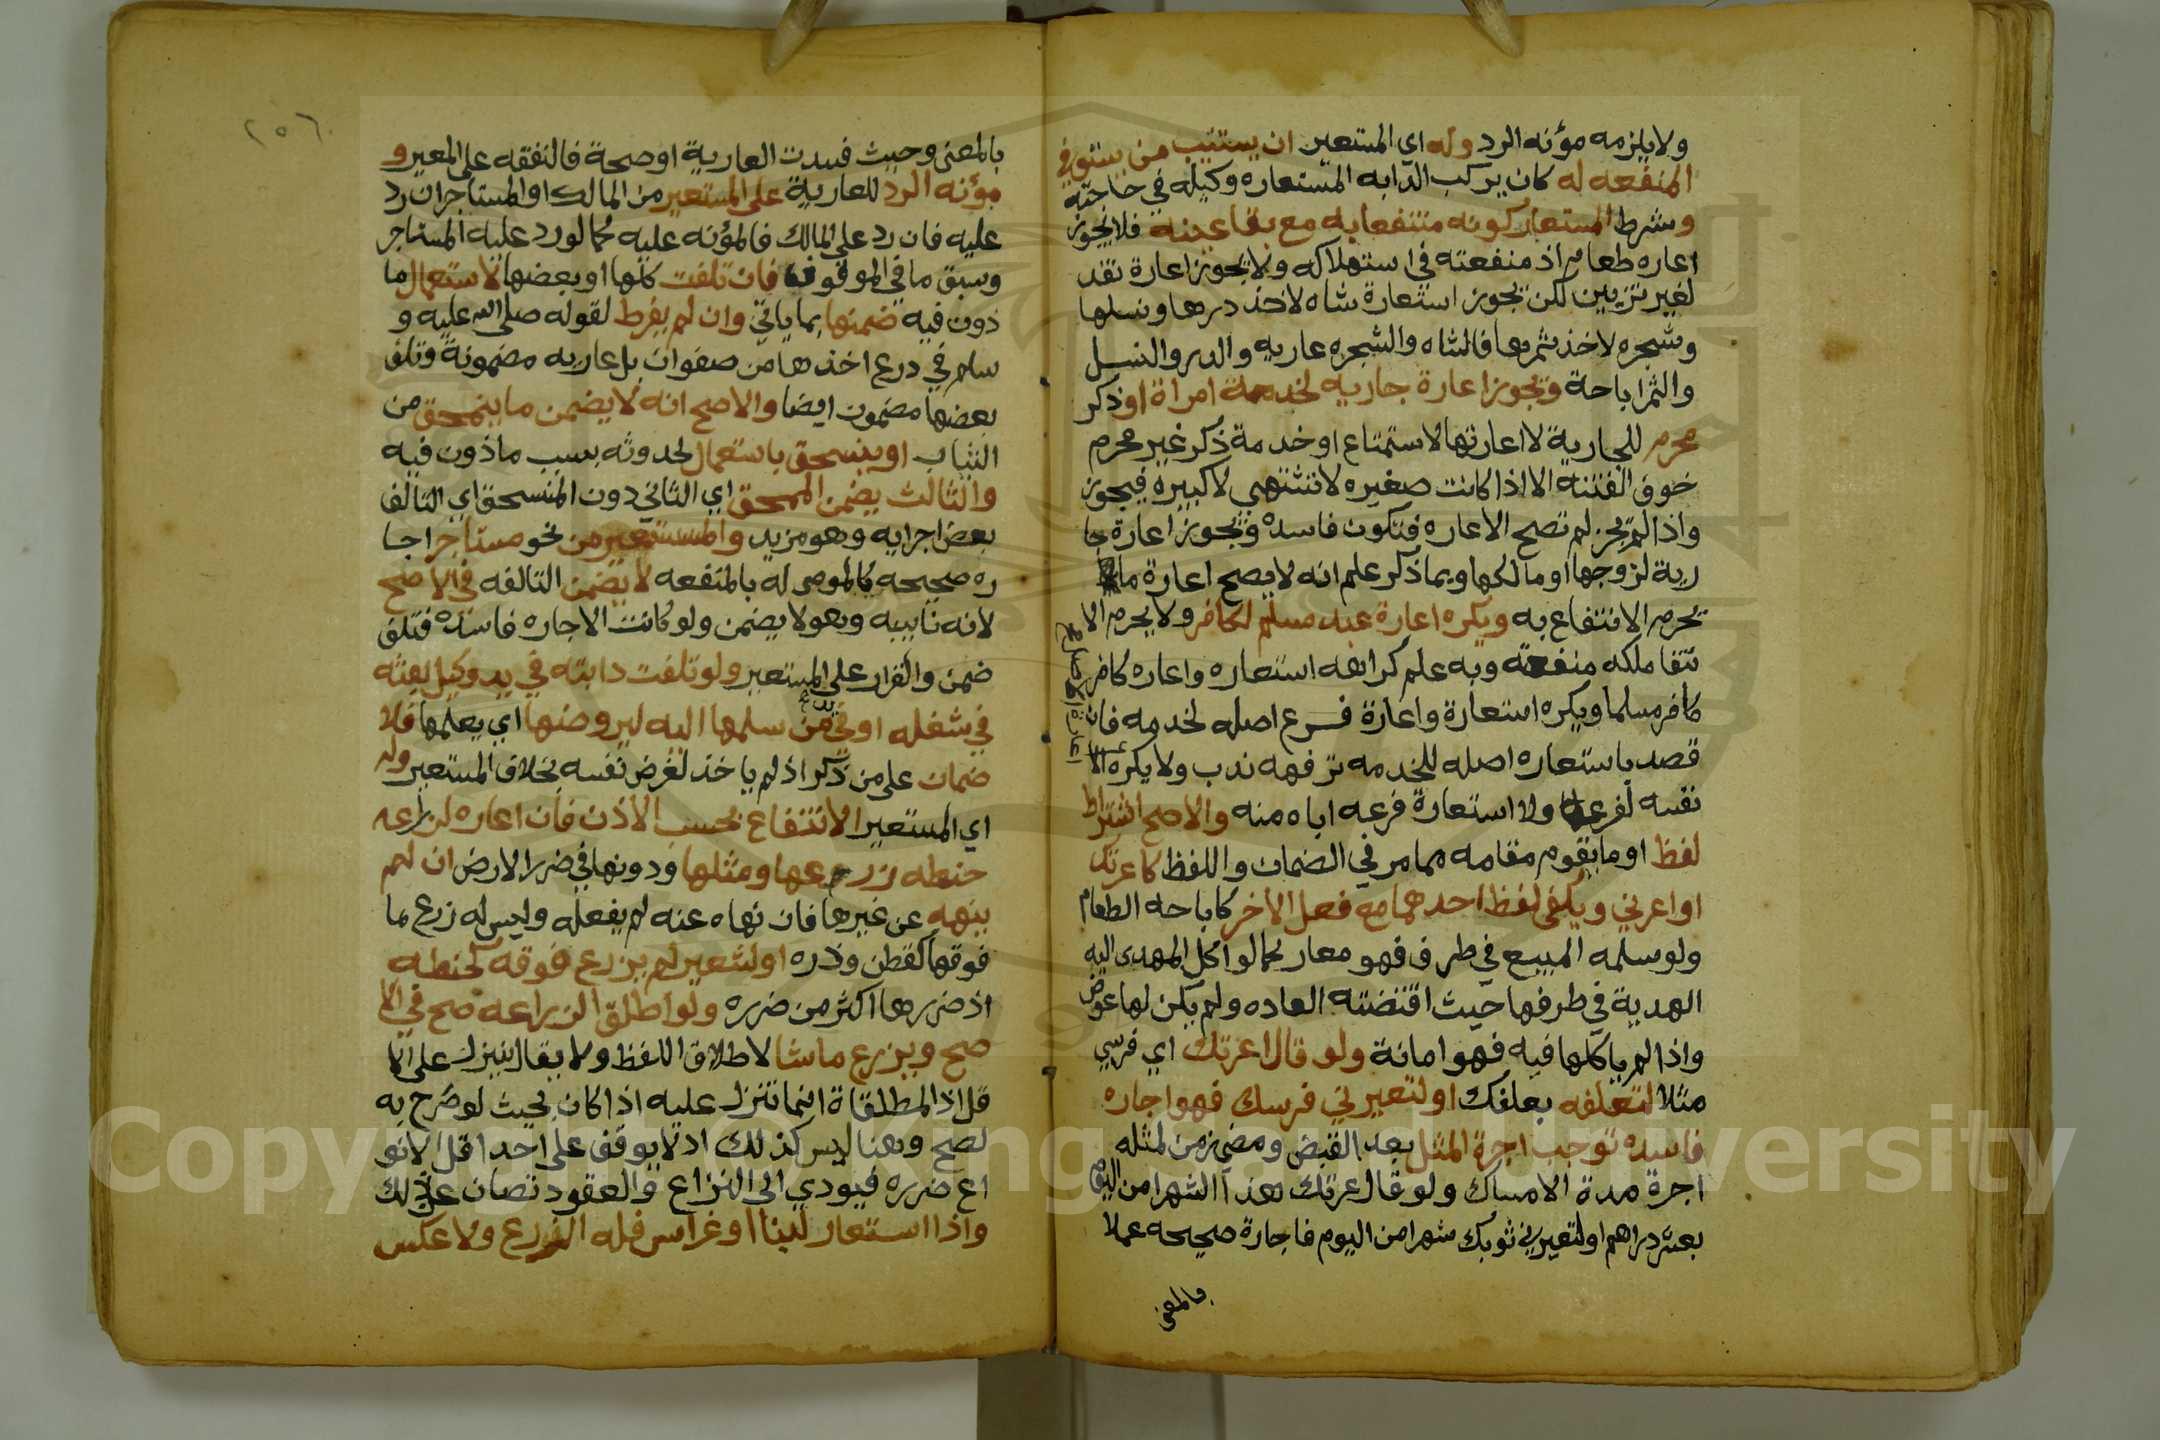 ولا يلزمه مؤنه الرد وله اي المستعير ان يستنيب من يستوفي
المنفعه له كان يركب الدابه المستعاره وكيله في حاجته
وشرط المستعار كونه منتفعا به مع بقا عينه فلا يجوز
اعاره طعام اذ منفعته في استهلاكه ولا يجوز اعارة نقد
لغير تزيين لكن يجوز استعارة شاه لاخذ درها ونسلها
وشجره لاخذ ثمرها فالشاه والشجره عاريه والدر والنسل
والثمر اباحة وتجوز اعارة جاريه لخدمة امراة او ذكر
محرم للجارية لا اعارتها لاستمتاع او خدمة ذكر غير محرم
خوف الفتنه الا اذا كانت صغيره لا تشتهي لا كبيره فيجوز
واذا لم يجز لم تصح الاعاره فتكون فاسده وتجوز اعارة جا
رية لزوجها او مالكها وبما ذكر علم انه لا يصح اعارة ما
يحرم الانتفاع به ويكره اعارة عبد مسلم لكافر ولا يحرم الا
نتفا ملكه منفعته وبه علم كراهه استعاره واعاره كافر
كافر مسلما ويكره استعارة واعارة فرع اصله لخدمه فان
قصد باستعاره اصله للخدمه ترفهه ندب ولا يكره
نفسه لفرعه ولا استعارة فرعه اباه منه والاصح اشتراط
لفظ او ما يقوم مقامه مما مر في الضمان واللفظ كاعرتك
او اعرني ويكفي لفظ احدهما مع فعل الاخر كاباحه الطعام
ولو سلمه المبيع في ظرف فهو معار كما لو اكل المهدى اليه
الهدية في ظرفها حيث اقتضته العاده ولم يكن لها عوض
واذا لم ياكلها فيه فهو امانة ولو قال اعرتك اي فرسي
مثلا لتعلفه بعلفك او لتعيرني فرسك فهو اجاره
فاسده توجب اجرة المثل بعد القبض ومضي زمن لمثله
اجرة مدة الامساك ولو قال اعرتك هذا الشهرا من اليوم
بعشر دراهم او لتعيرني ثوبك شهرا من اليوم فاجارة صحيحه عملا
بالمعنى
٢٥٦
بالمعنى وحيث فسدت العارية او صحة فالنفقه على المعير و
مؤنه الرد للعارية على المستعير من المالك او المستاجر ان رد
عليه فان رد على المالك فالمؤنه عليه كما لو رد عليه المستاجر
وسبق ما في الموقوف فان تلفت كلها او بعضها لا ستعمال ما
ذون فيه ضمنها بما ياتي وان لم يفرط لقوله صلى الله عليه و
سلم في درع اخذها من صفوان بل عاريه مضمونة وتلف
بعضها مضمون ايضا والاصح انه لا يضمن ما ينمحق من
الثياب او ينسحق باستعمال لحدوثه بسبب ماذون فيه
والثالث يضمن الممحق اي الثاني دون المنسحق اي التالف
بعض اجزايه وهو مزيد والمستعير من نحو مستاجر اجا
ره صحيحه كالموصى له بالمنفعه لا يضمن التالفه في الاصح
لانه نايبه وهو لا يضمن ولو كانت الاجاره فاسده فتلف
ضمن والقرار على المستعير ولو تلفت دابته في يد وكيل بعثه
في شغله او في يد من سلمها اليه ليروضها اي يعلمها فلا
ضمان على من ذكر اذ لم ياخذ لغرض نفسه بخلاف المستعير وله
اي المستعير الانتفاع بحسب الاذن فان اعاره لزراعه
حنطه زرعها ومثلها ودونها في ضرر الارض ان لم
ينهه عن غيرها فان نهاه عنه لم يفعله وليس له زرع ما
فوقها كقطن وذره او لشعير لم يزرع فوقه كحنطه
اذ ضررها اكثر من ضرره ولو اطلق الزراعه صح في الا
صح ويزرع ما شا لاطلاق اللفظ ولا يقال ينزل على الا
قل اذ المطلقاة انما تنزل عليه اذا كان بحيث لو صرح به
لصح وهنا ليس كذلك اذ لا يوقف على احد اقل الانو
اع ضرره فيودي الى النزاع والعقود تصان عن ذلك
واذا استعار لبنا او غراس فله الزرع ولا عكس
Copyright © King Saud University